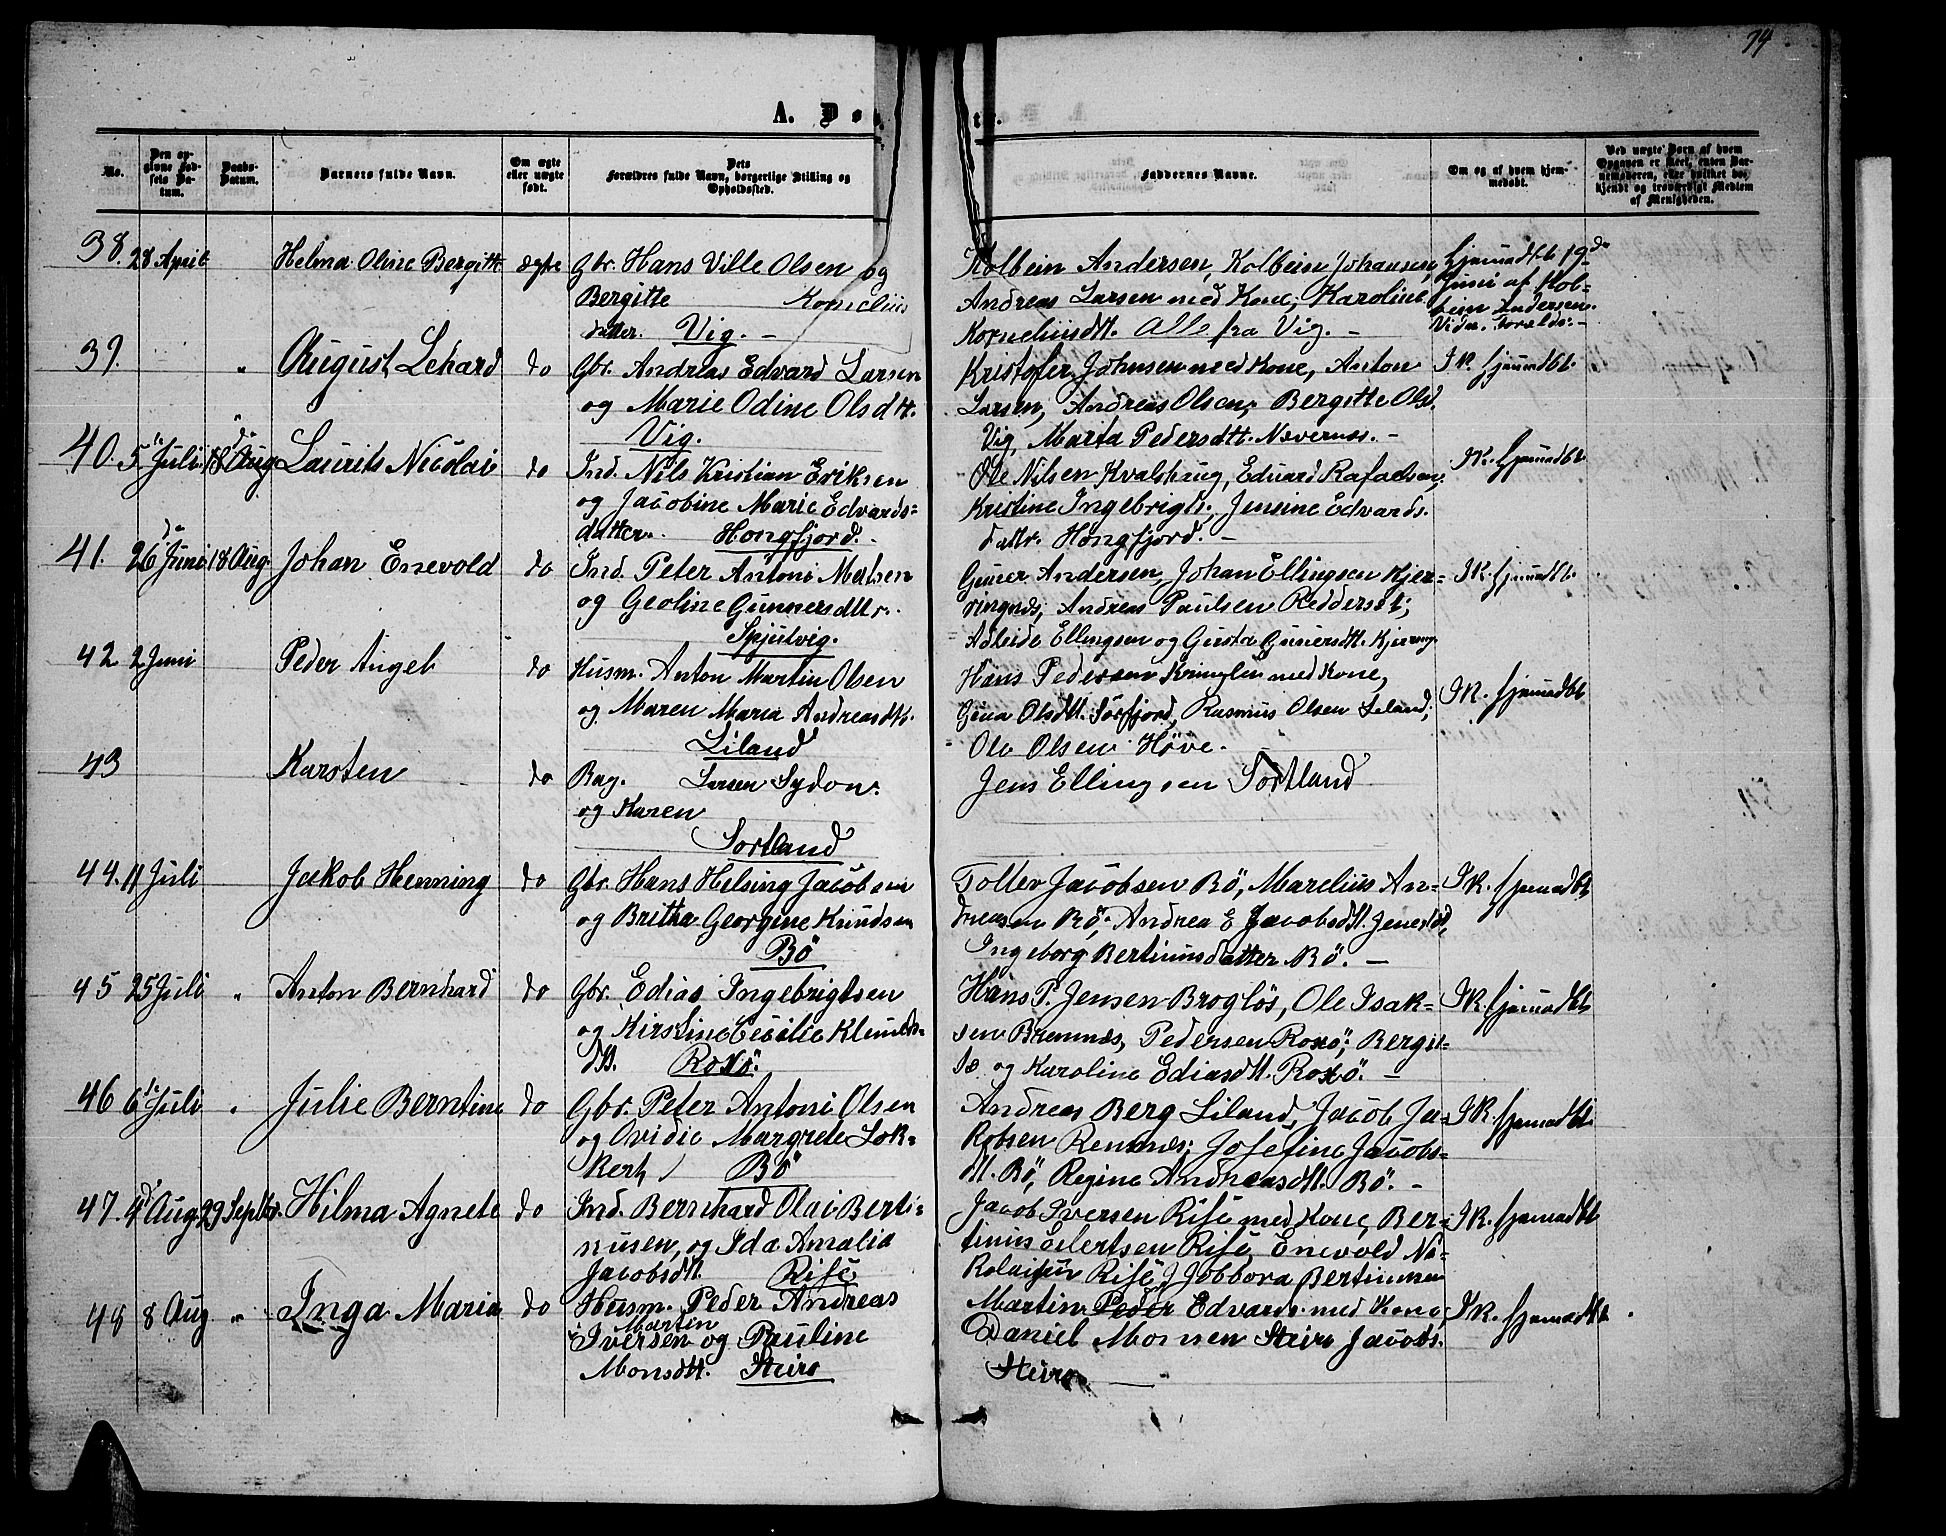 74
A. Døbte.
No.
Den opgivne Fødsels Datum.
Daabs-Datum.
Barnets fulde Navn.
Om ægte eller uægte født.
Dets Forældres fulde Navn, borgerlige Stilling og Opholdssted.
Faddernes Navne.
Om og af hvem hjemmedøbt.
Ved uægte Barn af hvem Opgaven er skeet, enten Barnemoderen, eller hvilket bekjendt og troværdigt Medlem af Menigheden.
38. 28 April " Helma Oline Bergitte ægte Gbr. Hans Ville Olsen og
Bergitte Kornelius
datter. Vig. –
Kolbein Andersen, Kolbein Johansen,
Andreas Larsen med Kone, Karoline
Korneliusdtt. Alle fra Vig. –
hjemdbt 19de
Juni af Kol-
bein Andersen
39. " August Lehard do Gbr. Andreas Edvard Larsen
og Marie Odine Olsdtt.
Vig.
Kristofer Johnsen med Kone, Anton
Larsen, Andreas Olsen, Bergitte Olsd.
Vig, Marta Pedersdtt. Nævernes. –
IK. hjemdbt.
40. 5te Juli 18de Aug Laurits Nicolai do Ind. Nils Kristian Eriksen
og Jacobine Marie Edvards-
datter. Hongfjord. –
Ole Nilsen Kvalshaug, Eduard Rafaelsen,
Kristine Ingebrigts., Jensine Edvards.
dattr. Hongfjord. –
IK. hjemdbt.
41. 26de Juni 18 Aug. Johan Enevold do Ind. Peter Antoni Matsen
og Geoline Gunnersdttr.
Spjutvig.
Guner Andersen, Johan Ellingsen Kjer-
ringnds, Andreas Paulsen Redderset;
Adleide Ellingsen og Gusta Gunersdtt. Kjerring.
IK. hjemdbt.
42 2 Juni Peder Angel do Husm. Anton Martin Olsen
og Maren Maria Andreasdtt.
Liland
Hans Pedersen Kringlen med Kone,
Gina Olsdtt. Sörfjord, Rasmus Olsen Liland;
Ole Olsen Höve.
IK. hjemdbt
43 Karsten do Bag. Larsen Sydon.
og Karen
Sortland
Jens Ellingsen Sortland
44. 11 Juli Jakob Henning do Gbr. Hans Helsing Jacobsen
og Britha Georgine Knudsen
Bö
Tollev Jacobsen Bö, Marelius An-
dreasen Bö, Andrea E Jacobsdtt. Jenestd,
Ingeborg Bertinusdatter Bö. –
IK. hjemdbt
45 25 Juli " Anton Bernhard do Gbr. Edias Ingebrigtsen
og Kirstine Cecilie Klemets-
dtt. Roxö.
Hans P. Jensen Broglös, Ole Isak-
sen Bremnæs, Pedersen Roxö; Bergit-
te og Karoline Ediasdtt. Roxö. –
IK. hjemdbt
46 6te Juli " Julie Berntine do Gbr. Peter Antoni Olsen
og Ovidie Margrete Lok-
kert, Bö
Andreas Berg Liland, Jacob Ja-
kobsen Rennæs; Josefine Jacobs-
dtt. Bö, Regine Andreasdtt. Bö. –
IK. hjemdbt.
47. 4de Aug. 29 Septbr. Hilma Agnete do Ind. Bernhard Olai Berti-
nusen, og Ida Amalia
Jacobsdtt. Risé
Jacob Iversen Risé med Kone, Ber-
tinus Eilertsen Risé, Enevold Ni-
kolaisen Risé, Jobbora Bertinusen
IK. hjemdbt
48 8 Aug " Inga Maria do Husm. Peder Andreas
Martin
Iversen og Pauline
Monsdtt. Steiro
Martin Peder Edvards. med Kone,
Daniel Monsen Steiro Jacobs.
Steiro –
IK. hjemdbt.